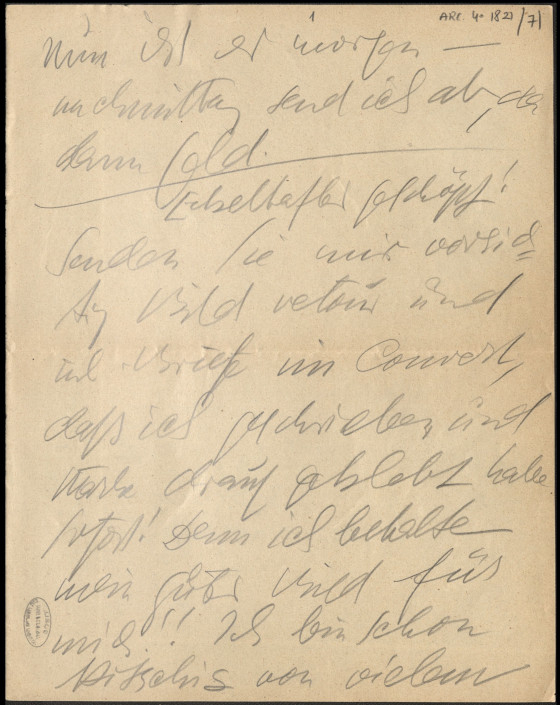 1
ARC. 4° 1821/7
Nun ist es morgen —
nachmittag send ich ab,
dann Geld.
Ekelhaftes Geschöpf!
Senden Sie mir vorsich=
tig Bild retour und
Briefe im Couvert,
daß ich geschrieben und
Marke drauf geklebt habe
sofort! Denn ich behalte
mein Bild für
mich!! Ich bin schon
von vielem